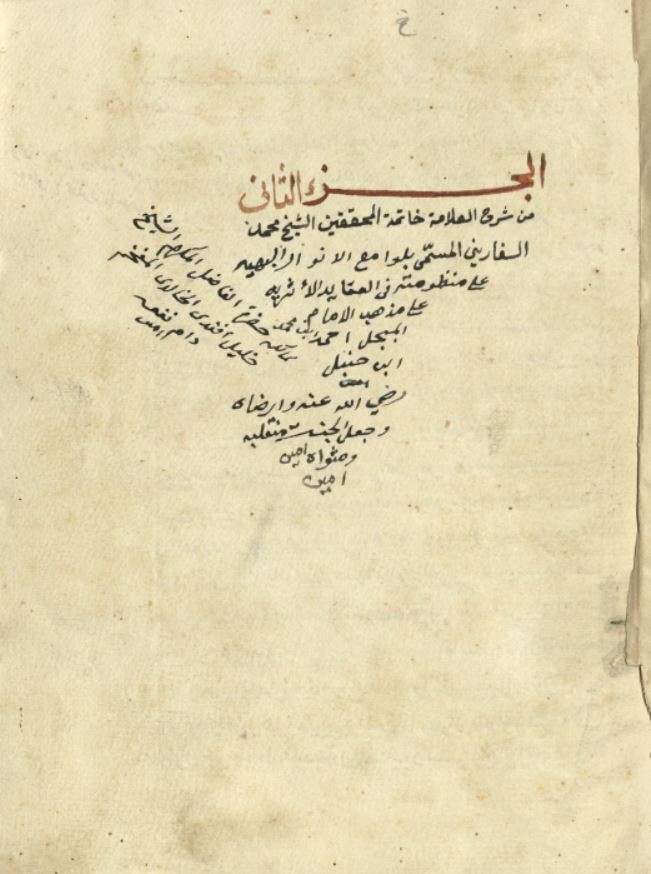 الجزء الثاني
من شرح العلامة خاتمة المحققين الشيخ محمد
السفاريني المسمى بلوامع الانوار البهيه
على منظومته في العقايد الأثريه
على مذهب الامام
المبجل احمد ابن محمد
ابن حنبل
رضي الله عنه وارضاه
وجعل الجنة متقلبه
ومثواه امين
امين
حضرة الفاضل المكرم الشيخ
خليل افندي الخالدي المفخم
دام نفعه